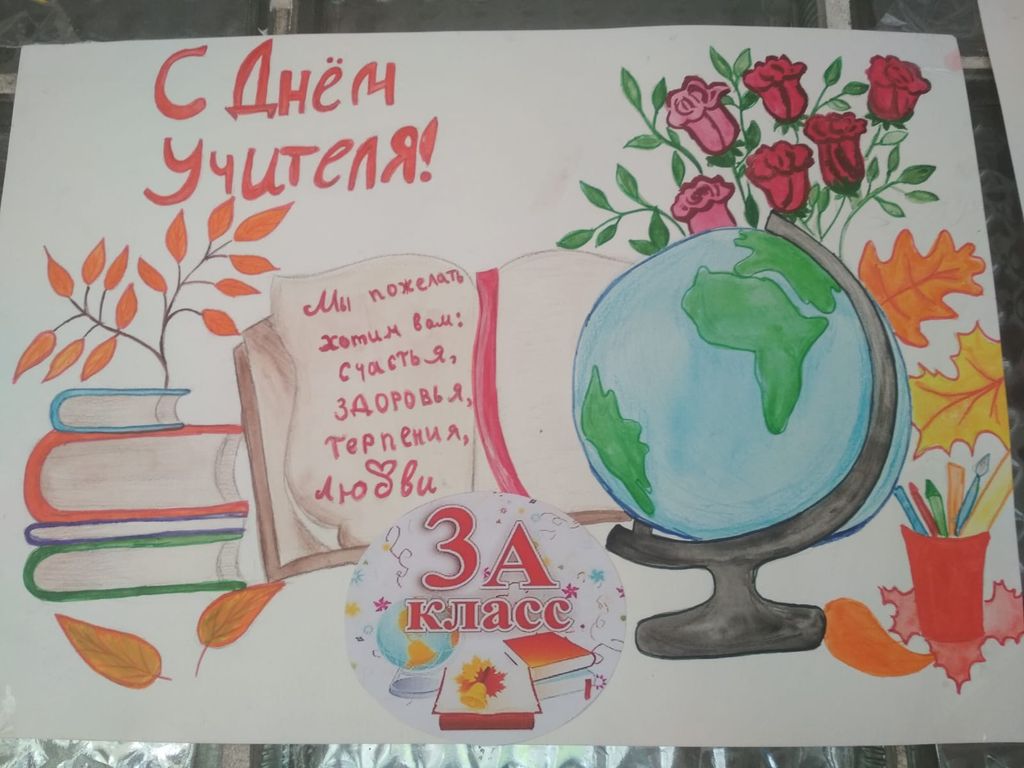 С Днём
Учителя!
Мы пожелать
хотим вам:
счастья,
здоровья,
терпения,
любви
3А
класс